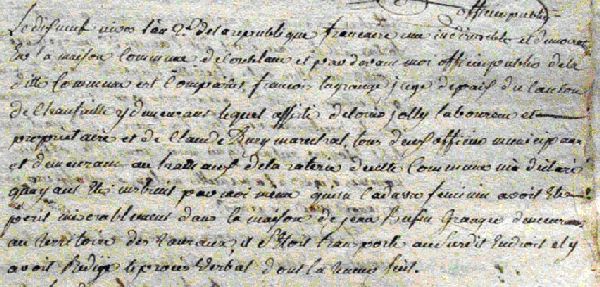 officier public
Le dix neuf nivos l'an 2e de la republique francaise une indivisible et democra
les la maison Commune de Coublanc et par devant moi officier public de la
ditte Commune est Comparut francois lagrange juge de paix du Canton
de Chaufaille y demeurant lequel assisté de Louis jolly laboureur et
proprietaire et de Claude Buy marechal, tous deux officiers municipaux
et demeurant au de la ditte Commune m'a déclaré
quayant été instruit par moi meme quun Cadavre feminin avoit été
perit miserablement dans la maison de jean Grangre demeurant
au territoire des il s'etoit transporté audit Endroit et y
avoit Redigé le proces Verbal dont la teneur suit.